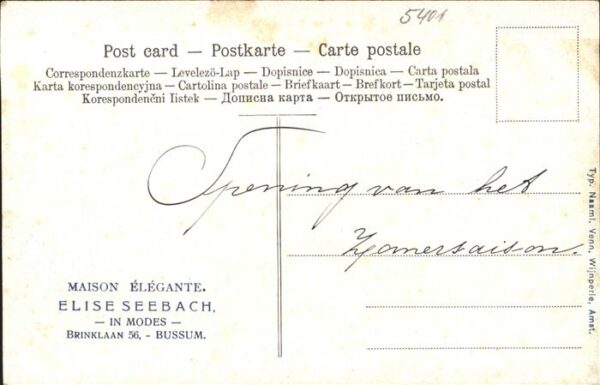 5401
Post card — Postkarte — Carte postale
Correspondenzkarte — Levelező-Lap — Dopisnice — Dopisnica — Carta postala
Karta korespondencyjna — Cartolina postale — Briefkaart — Brefkort — Tarjeta postal
Korespondenčni listek — Дописна карта — Открытое письмо.
Opening van het
Zomersaison.
MAISON ÉLÉGANTE.
ELISE SEEBACH,
— IN MODES —
BRINKLAAN 56, - BUSSUM.
Typ. Naaml. Venn. Wijnperle, Amst.